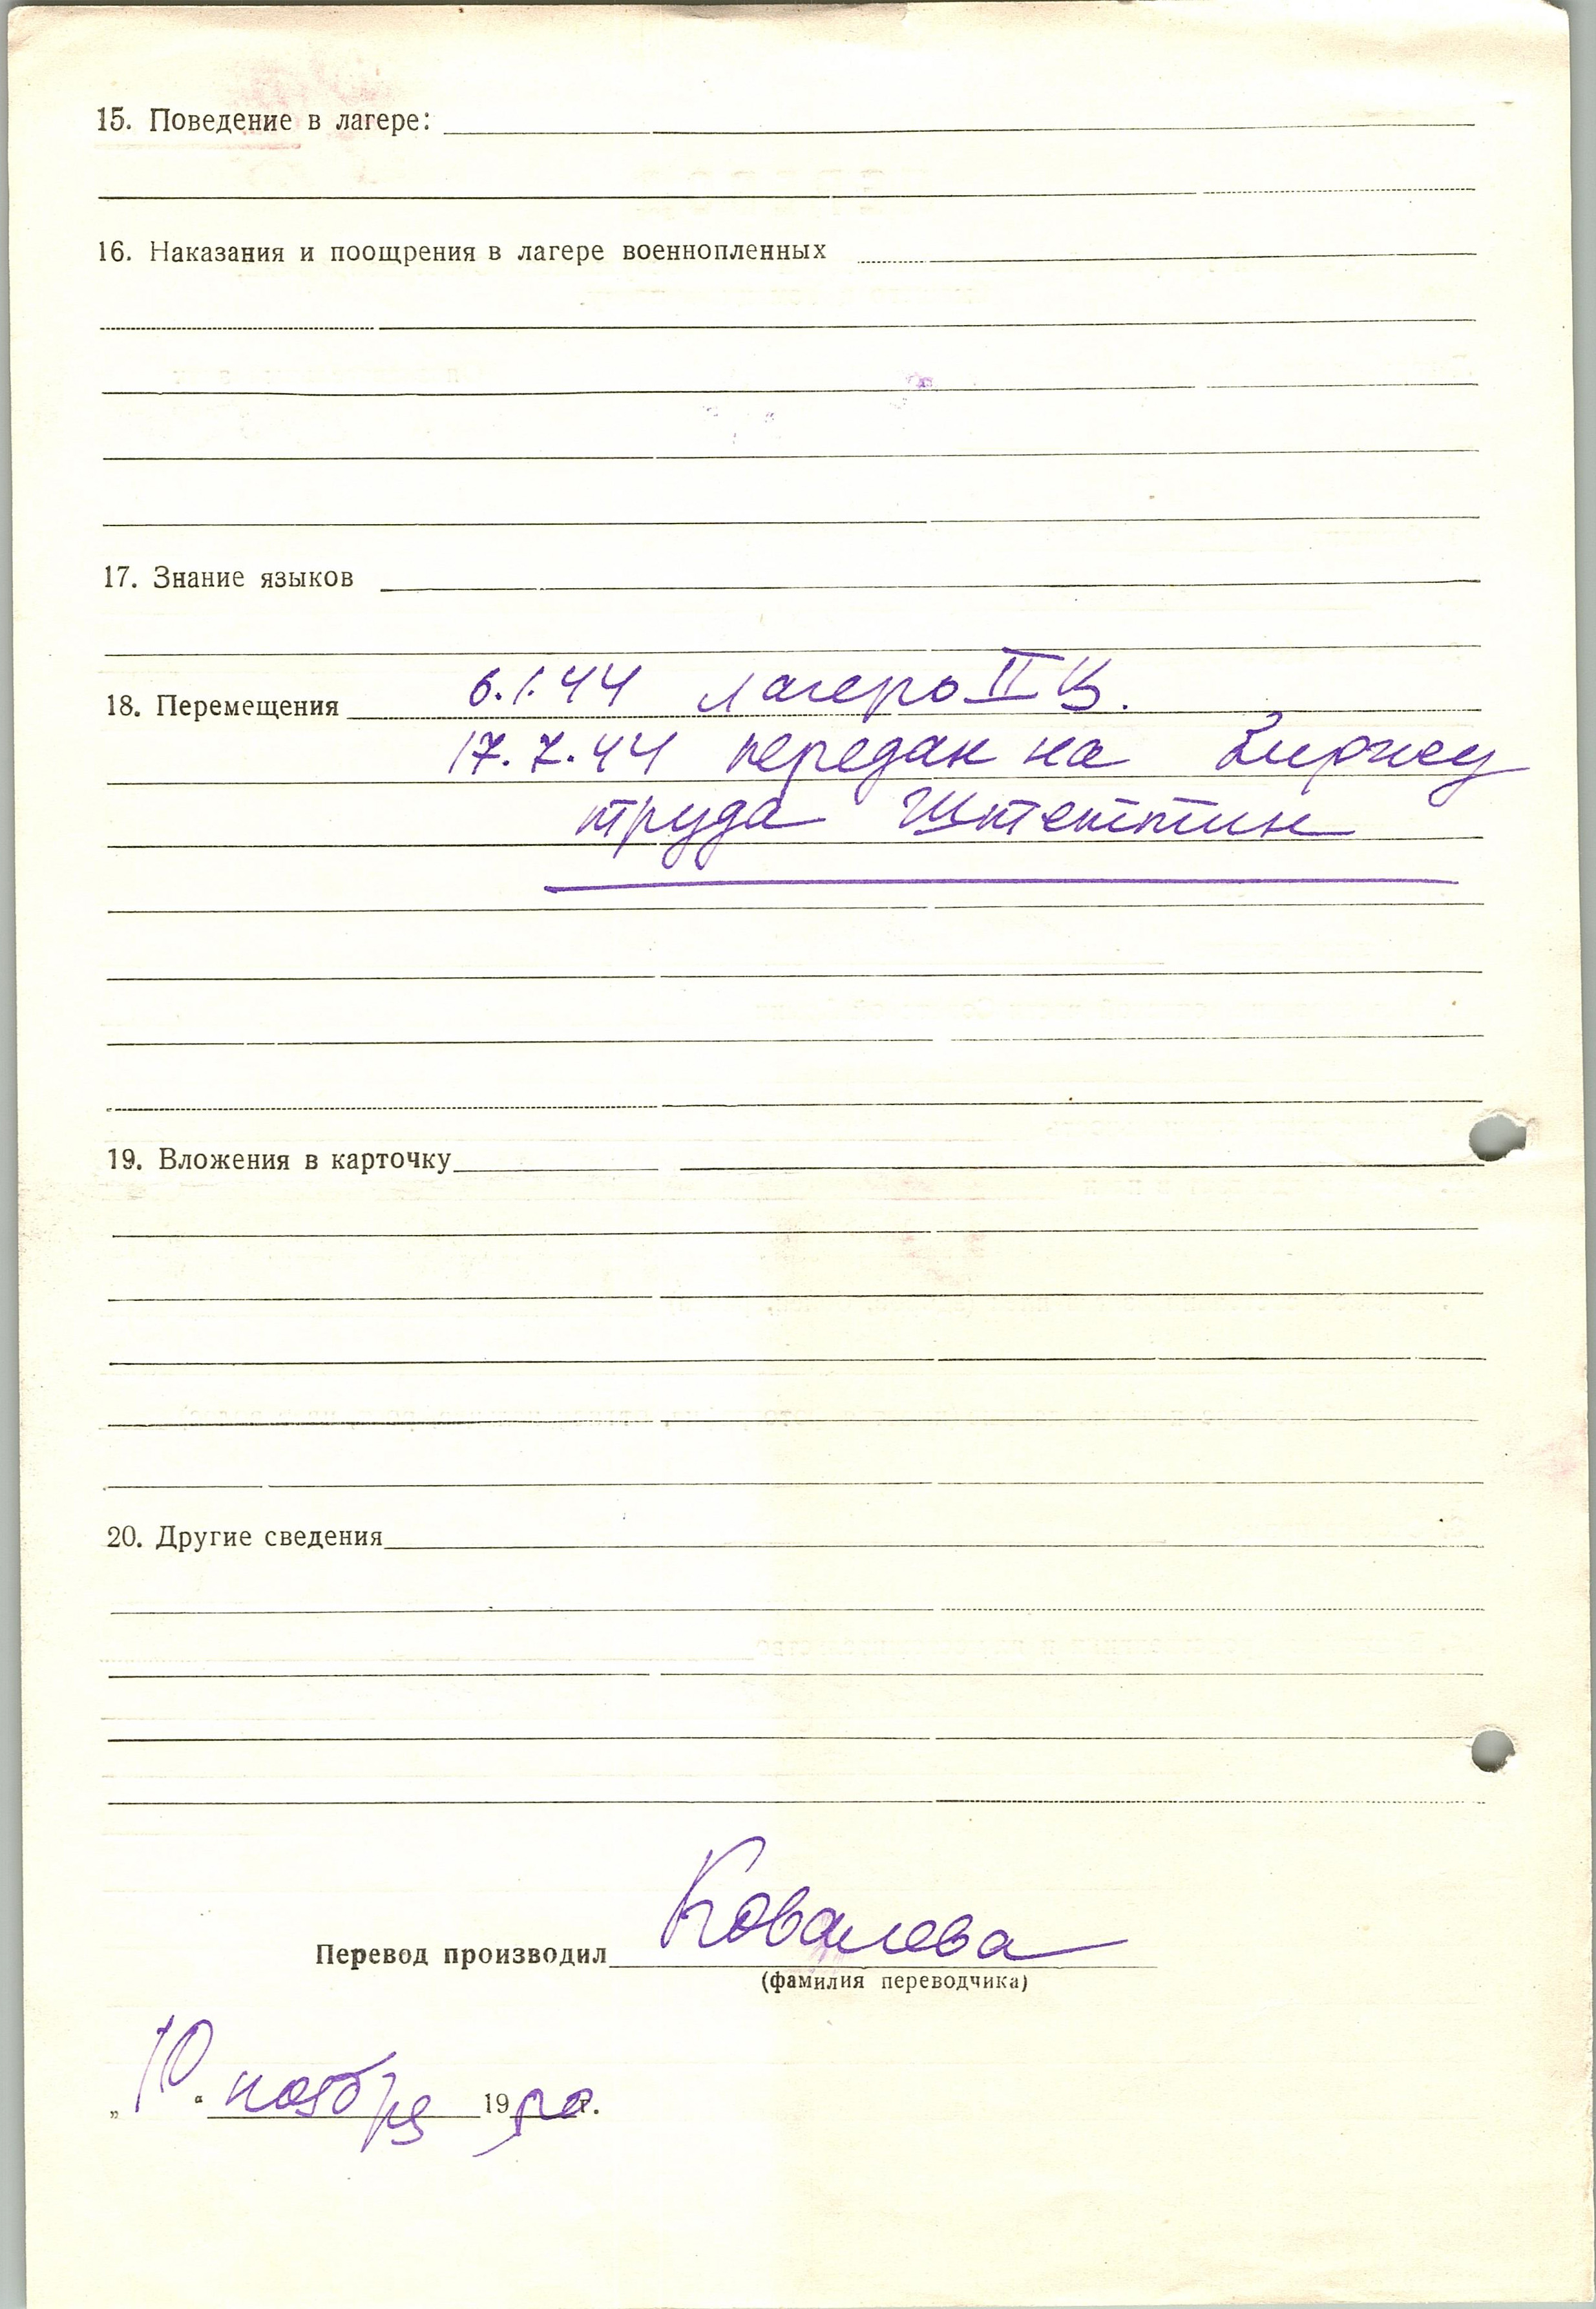 15. Поведение в лагере:
16. Наказания и поощрения в лагере военнопленных
17. Знание языков
18. Перемещения 6.1.44 лагерь II В.
17.7.44 передан на биржу
труда Штеттин
19. Вложения в карточку
20. Другие сведения
Перевод производил Ковалева
(фамилия переводчика)
„10“ ноября 1950г.